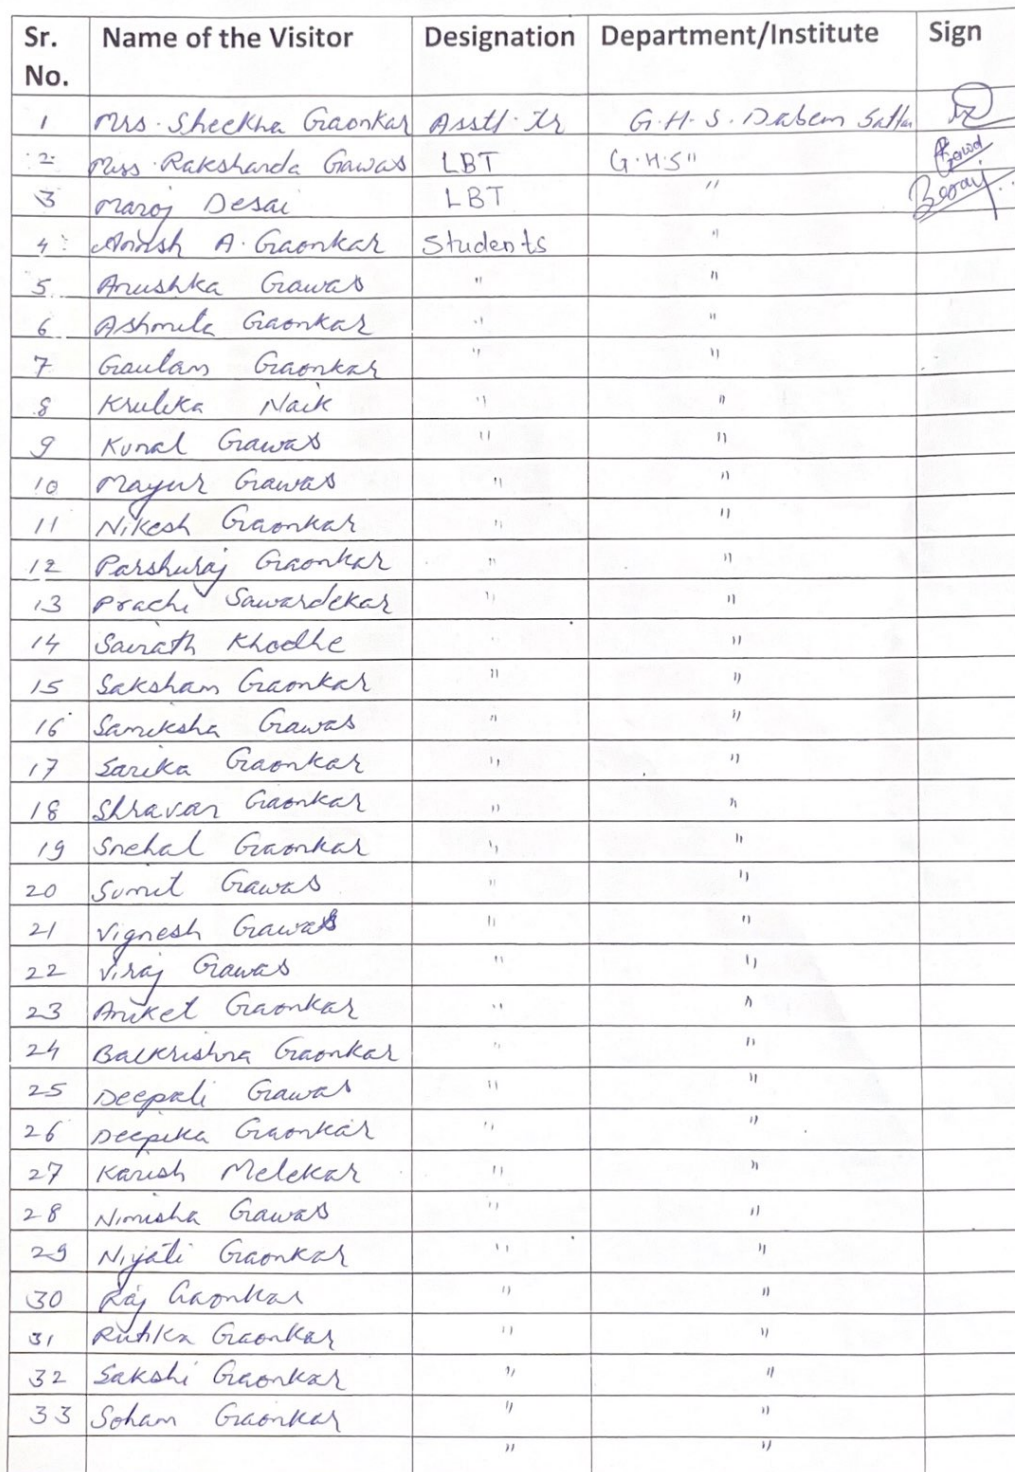 Sr. No. Name of the Visitor Designation Department/Institute Sign
1 Mrs. Sheekha Gaonkar Asstt. Tr G.H.S. Dabem Sattari
2 Miss. Raksharda Gawas LBT G.H.S "
3 Maroj Desai LBT "
4 Anish A. Gaonkar Students "
5 Anushka Gawas " "
6 Ashmita Gaonkar " "
7 Gautam Gaonkar " "
8 Krutika Naik " "
9 Kunal Gawas " "
10 Mayur Gawas " "
11 Nikesh Gaonkar " "
12 Parshuraj Gaonkar " "
13 Prachi Sawardekar " "
14 Sairath Khodhe "
15 Saksham Gaonkar " "
16 Samiksha Gawas " "
17 Sarika Gaonkar " "
18 Shravan Gaonkar " "
19 Snehal Gaonkar " "
20 Sumit Gawas " "
21 Vignesh Gawas " "
22 Viraj Gawas " "
23 Aniket Gaonkar " "
24 Balkrishna Gaonkar " "
25 Deepali Gawas " "
26 Deepika Gaonkar " "
27 Karish Melekar " "
28 Nimisha Gawas " "
29 Niyati Gaonkar " "
30 Raj Gaonkar " "
31 Rutika Gaonkar " "
32 Sakshi Gaonkar " "
33 Soham Gaonkar " "
" "